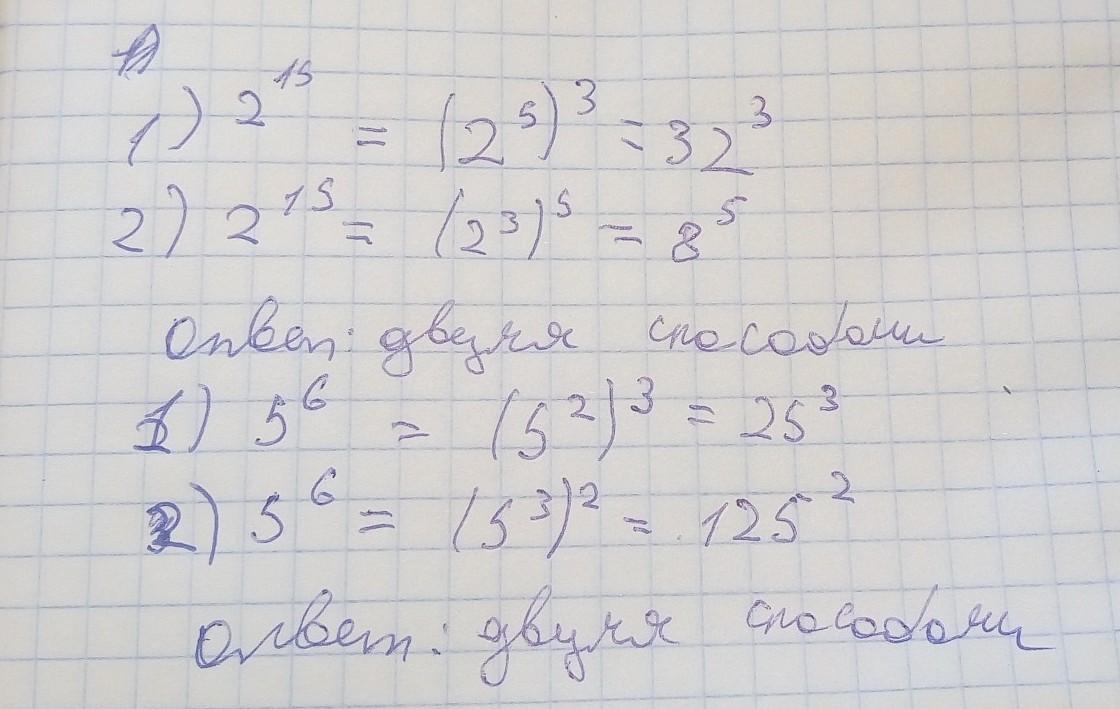 1) 2¹⁵ = (2⁵)³ = 32³
2) 2¹⁵ = (2³)⁵ = 8⁵
Ответ: двумя способами
1) 5⁶ = (5²)³ = 25³
2) 5⁶ = (5³)² = 125²
Ответ: двумя способами